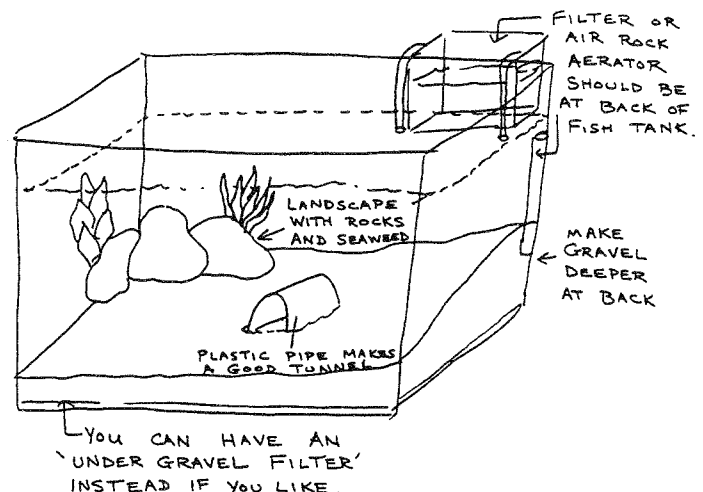 FILTER OR
AIR ROCK
AERATOR
SHOULD BE
AT BACK OF
FISH TANK.
LANDSCAPE
WITH ROCKS
AND SEAWEED
MAKE
GRAVEL
DEEPER
AT BACK
PLASTIC PIPE MAKES
A GOOD TUNNEL
YOU CAN HAVE AN
'UNDER GRAVEL FILTER'
INSTEAD IF YOU LIKE.